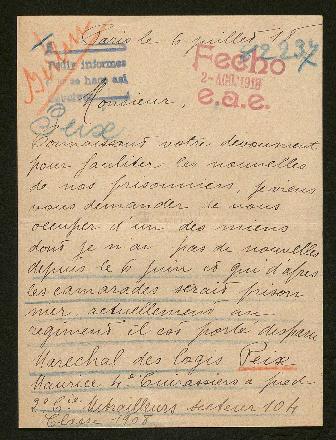 Paris le 6 juillet 18
12237
Pedir informes
y se hace así
Fecho
2-AGO.1918
e.a.e.
Monsieur,
Peix
Connaissant votre devouement
pour faciliter les nouvelles
de nos prisonniers, je viens
vous demander de vous
occuper d'un des miens
dont je n'ai pas de nouvelles
depuis le 6 juin et qui d'après
les camarades serait prison
nier, actuellement au
regiment il est porté disparu
Marechal des logis Peix
Maurice 4e Cuirassiers à pied
2e Cie Mitrailleurs secteur 104
Classe 1908